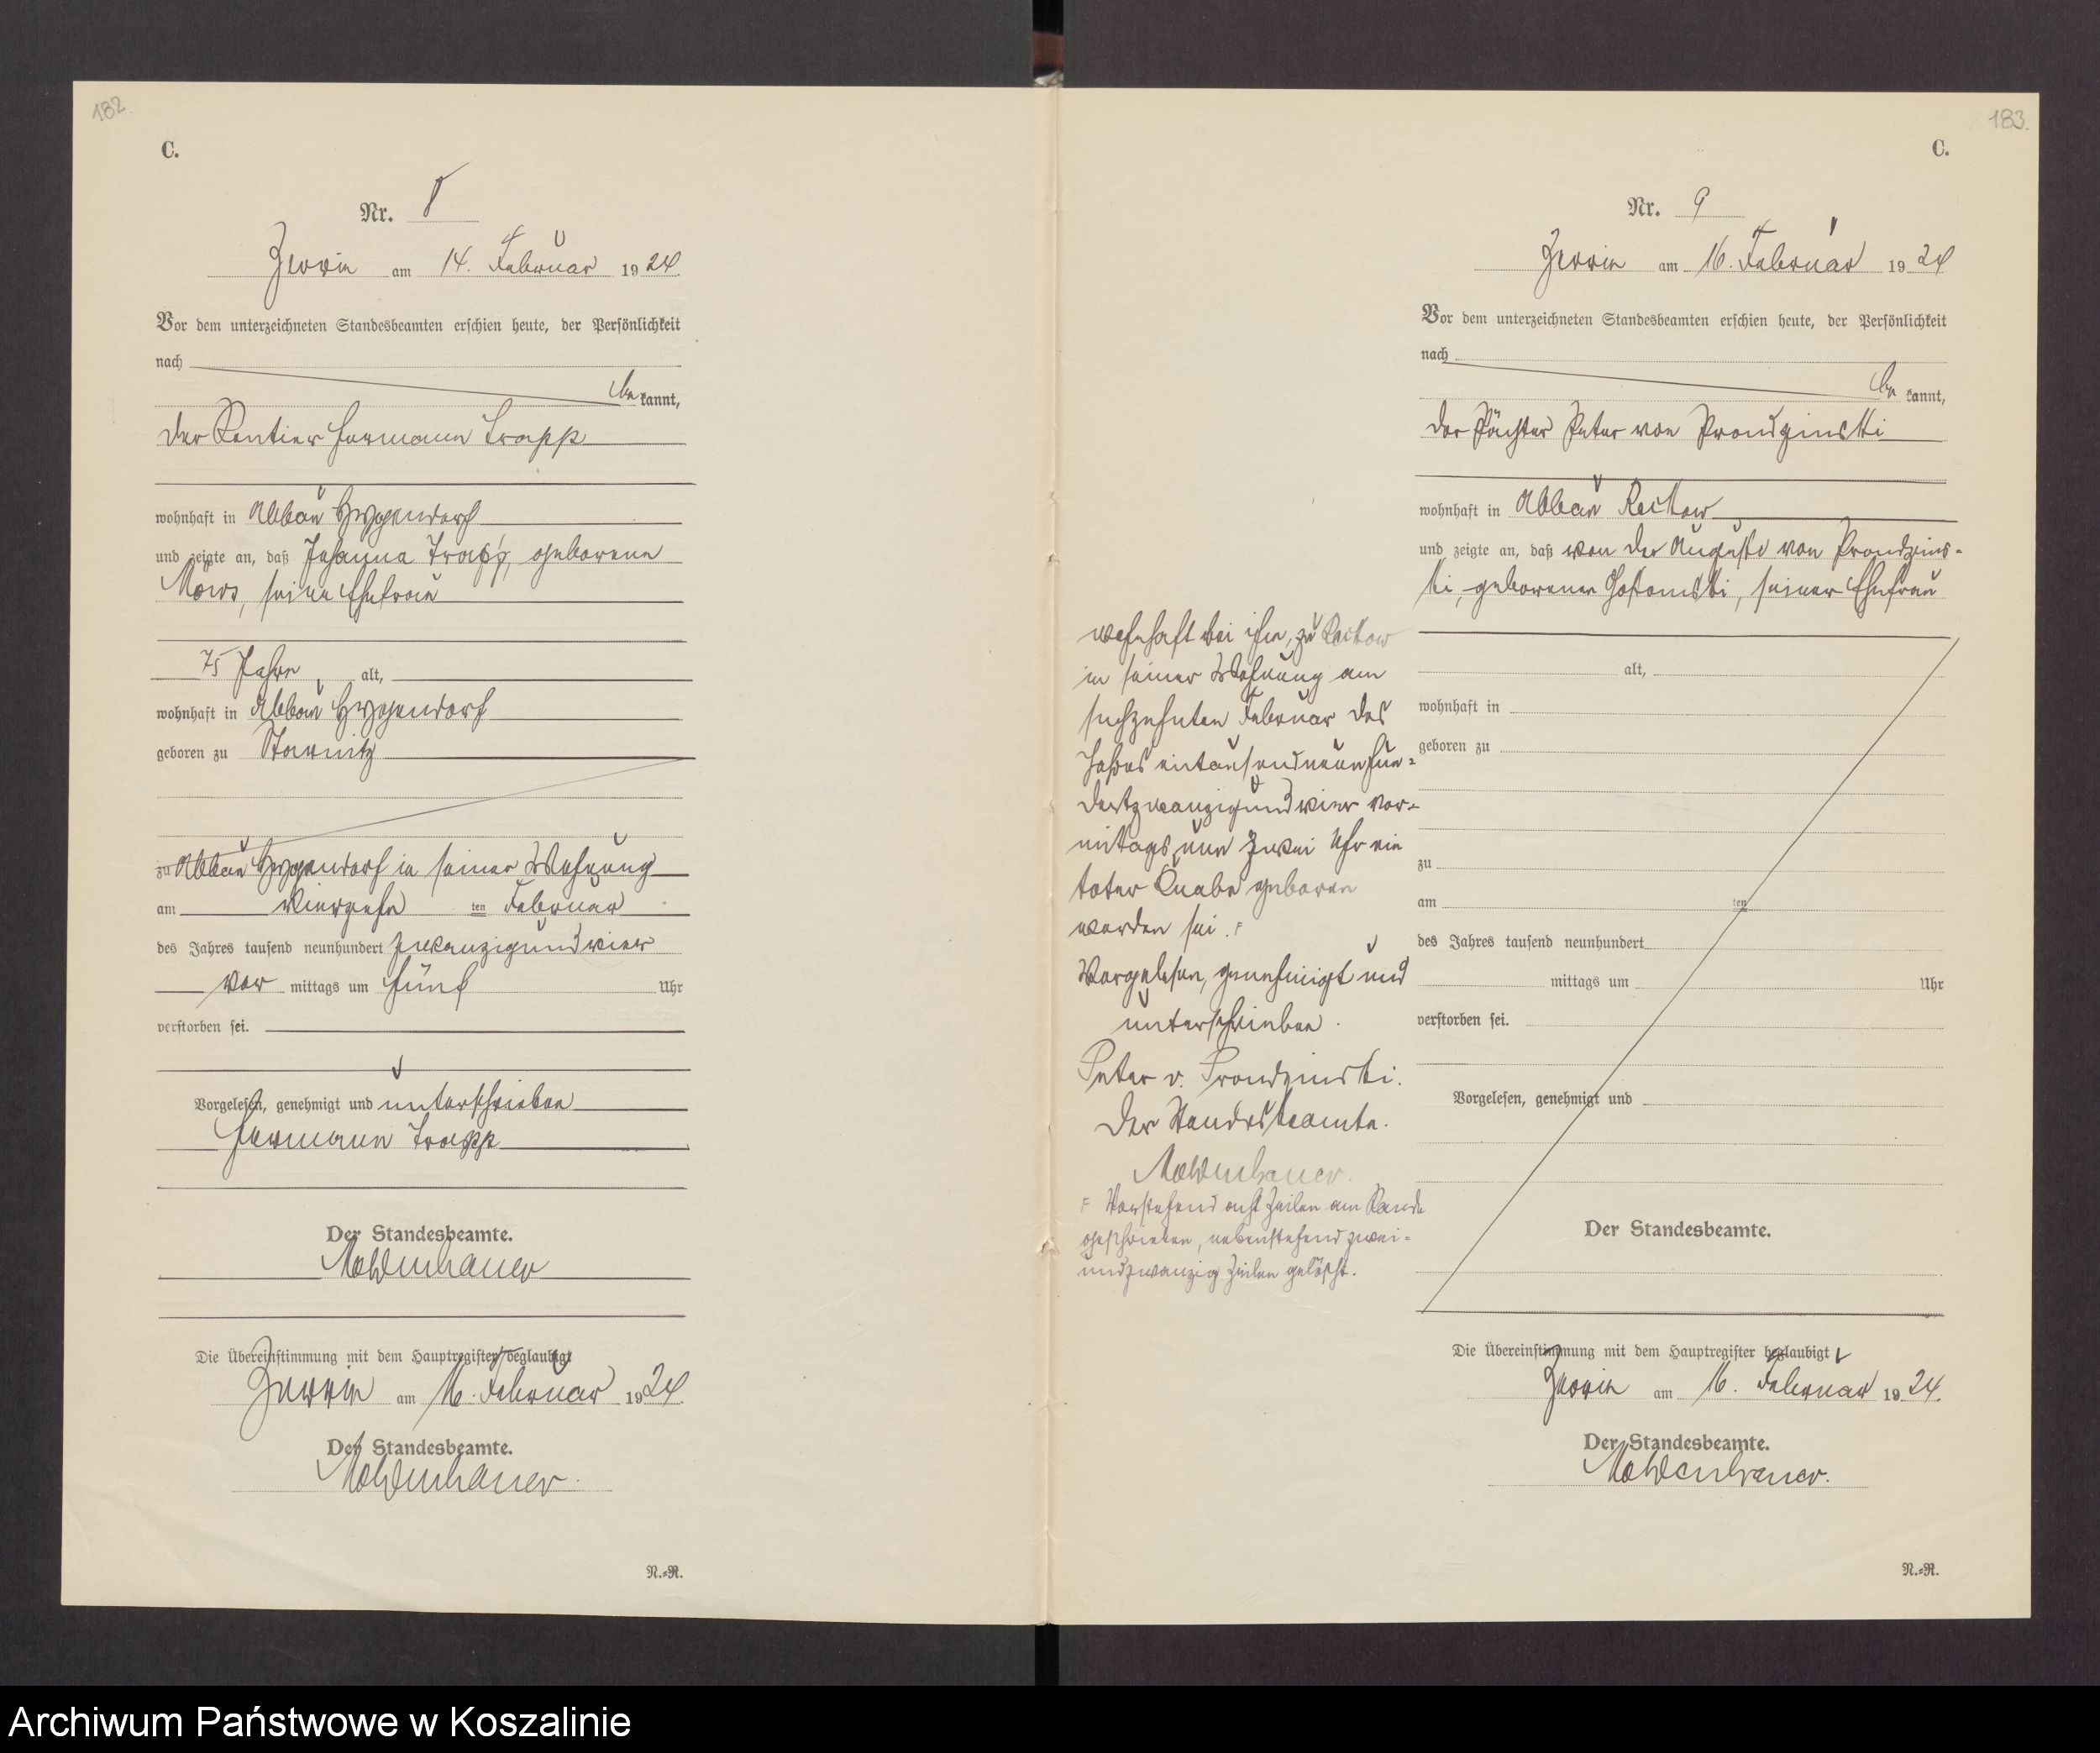 182.
C.
Nr. 8
Zerrin am 14. Februar 1924.
Vor dem unterzeichneten Standesbeamten erschien heute, der Persönlichkeit
nach
be kannt,
der Rentier Hermann Trapp
wohnhaft in Abbau Hygendorf
und zeigte an, daß Johanna Trapp, geborene
Möws, seine Ehefrau
75 Jahre alt,
wohnhaft in Abbau Hygendorf
geboren zu Stornitz
zu Abbau Hygendorf in seiner Wohnung
am vierzehn ten Februar
des Jahres tausend neunhundert zwanzigundvier
vor mittags um fünf Uhr
verstorben sei.
Vorgelesen, genehmigt und unterschrieben
Hermann Trapp
Der Standesbeamte.
Moldenhauer
Die Übereinstimmung mit dem Hauptregister beglaubigt
Zerrin am 16. Februar 1924.
Der Standesbeamte.
Moldenhauer.
N.=R.
183.
C.
Nr. 9
Zerrin am 16. Februar 1924
Vor dem unterzeichneten Standesbeamten erschien heute, der Persönlichkeit
nach
be kannt,
der Pächter Peter von Prondzinski
wohnhaft in Abbau Reckow
und zeigte an, daß von der Auguste von Prondzins-
ki, geborener Gostomski, seiner Ehefrau
wohnhaft bei ihm, zu Reckow
in seiner Wohnung am
sechzehnten Februar des
Jahres eintausendneunhun=
dertzwanzigundvier vor=
mittags um zwei Uhr ein
toter Knabe geboren
worden sei. F
Vorgelesen, genehmigt und
unterschrieben.
Peter v. Prondzinski.
Der Standesbeamte.
Moldenhauer.
F Vorstehend acht Zeilen am Rande
geschrieben, nebenstehend zwei=
undzwanzig Zeilen gelöscht.
alt,
wohnhaft in
geboren zu
zu
am ten
des Jahres tausend neunhundert
mittags um Uhr
verstorben sei.
Vorgelesen, genehmigt und
Der Standesbeamte.
Die Übereinstimmung mit dem Hauptregister beglaubigt
Zerrin am 16. Februar 1924.
Der Standesbeamte.
Moldenhauer.
N.=R.
Archiwum Państwowe w Koszalinie